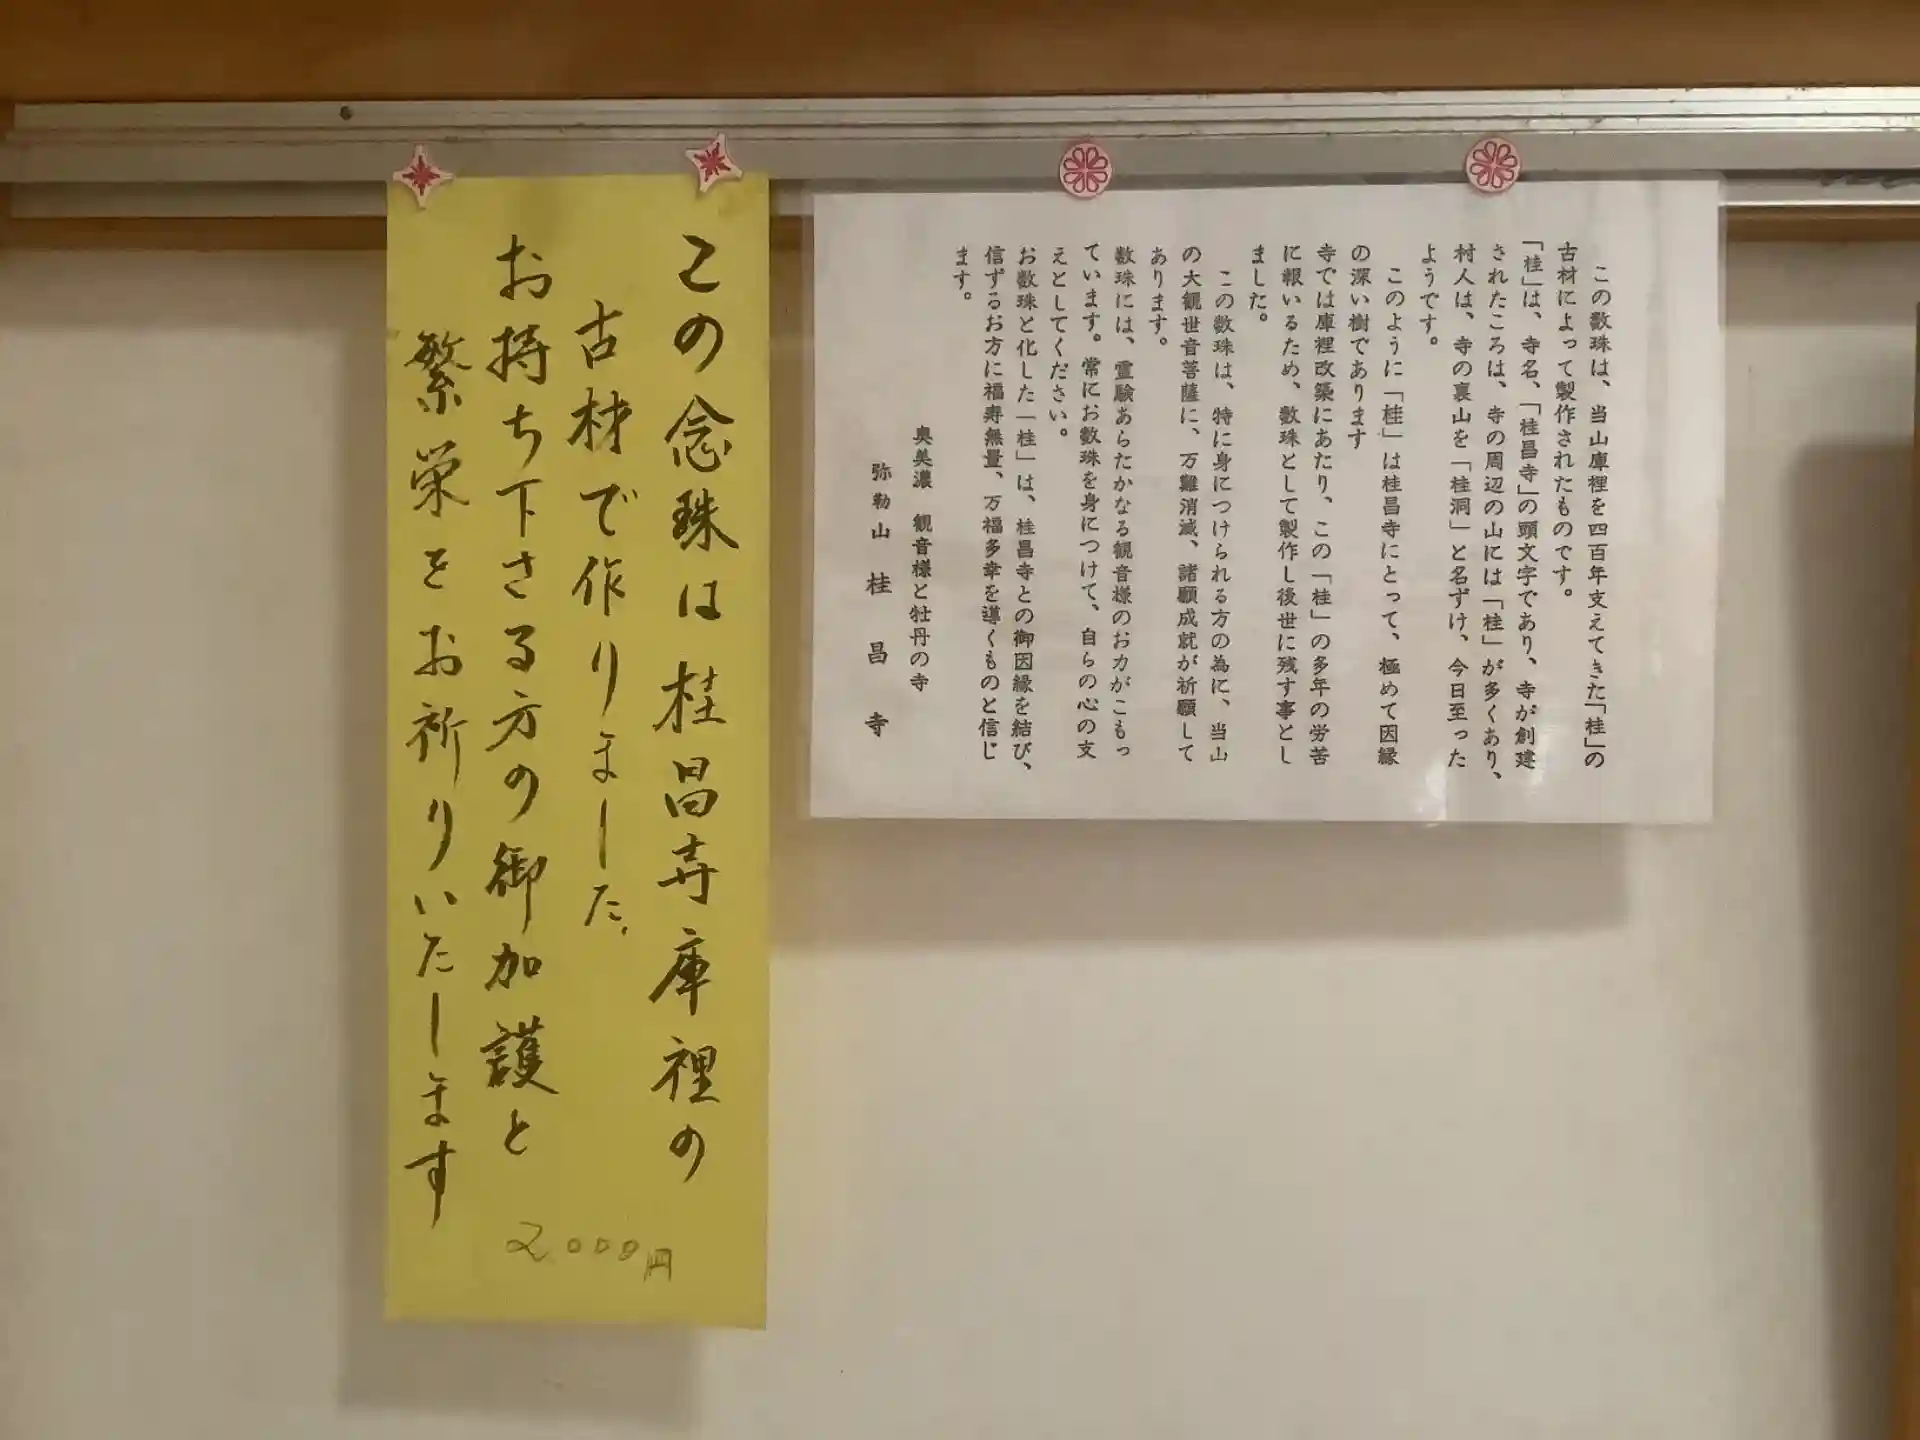 この数珠は、当山庫裡を四百年支えてきた「桂」の
古材によって製作されたものです。
「桂」は、寺名、「桂昌寺」の頭文字であり、寺が創建
されたころは、寺の周辺の山には「桂」が多くあり、
村人は、寺の裏山を「桂洞」と名ずけ、今日至った
ようです。
このように「桂」は桂昌寺にとって、極めて因縁
の深い樹であります
寺では庫裡改築にあたり、この「桂」の多年の労苦
に報いるため、数珠として製作し後世に残す事とし
ました。
この数珠は、特に身につけられる方の為に、当山
の大観世音菩薩に、万難消滅、諸願成就が祈願して
あります。
数珠には、霊験あらたかなる観音様のお力がこもっ
ています。常にお数珠を身につけて、自らの心の支
えとしてください。
お数珠と化した「桂」は、桂昌寺との御因縁を結び、
信ずるお方に福寿無量、万福多幸を導くものと信じ
ます。
奥美濃 観音様と牡丹の寺
弥勒山 桂昌寺
この念珠は桂昌寺庫裡の
古材で作りました、
お持ち下さる方の御加護と
繁栄をお祈りいたします
2.000円